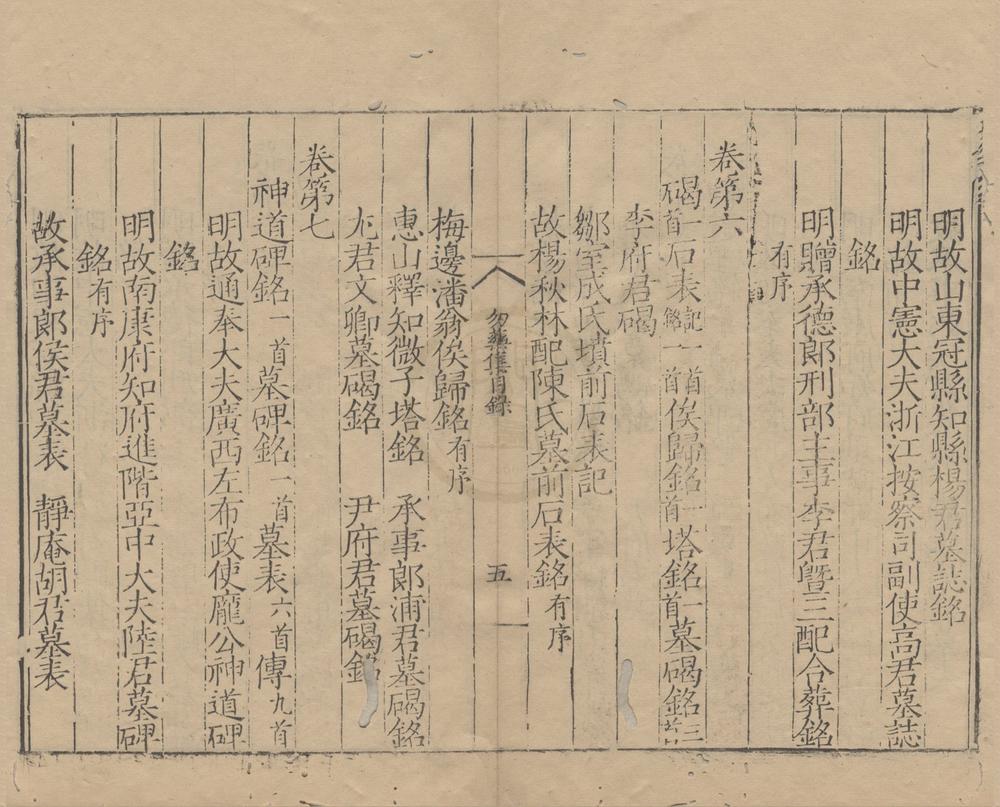 明故山東冠縣知縣楊君墓誌銘
明故中憲大夫浙江按察司副使高君墓誌
銘
明贈承德郎刑部主事李君暨三配合葬銘
有序
卷第六
碣一首石表記一首銘一首俟歸銘一首塔銘一首墓碣銘三首
李府君碣
鄒室成氏墳前石表記
故楊秋林配陳氏墓前石表銘有序
目錄
五
梅邊潘翁俟歸銘有序
惠山釋知微子塔銘 承事郎浦君墓碣銘
尤君文卿墓碣銘 尹府君墓碣銘
卷第七
神道碑銘一首墓碑銘一首墓表六首傳九首
明故通奉大夫廣西左布政使龐公神道碑
銘
明故南康府知府進階亞中大夫陸君墓碑
銘有序
故承事郎侯君墓表 靜庵胡君墓表